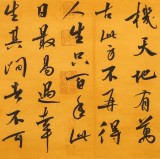 機天地有萬
古此身不再得
人生只百年此
日最易過幸
生其間者不可